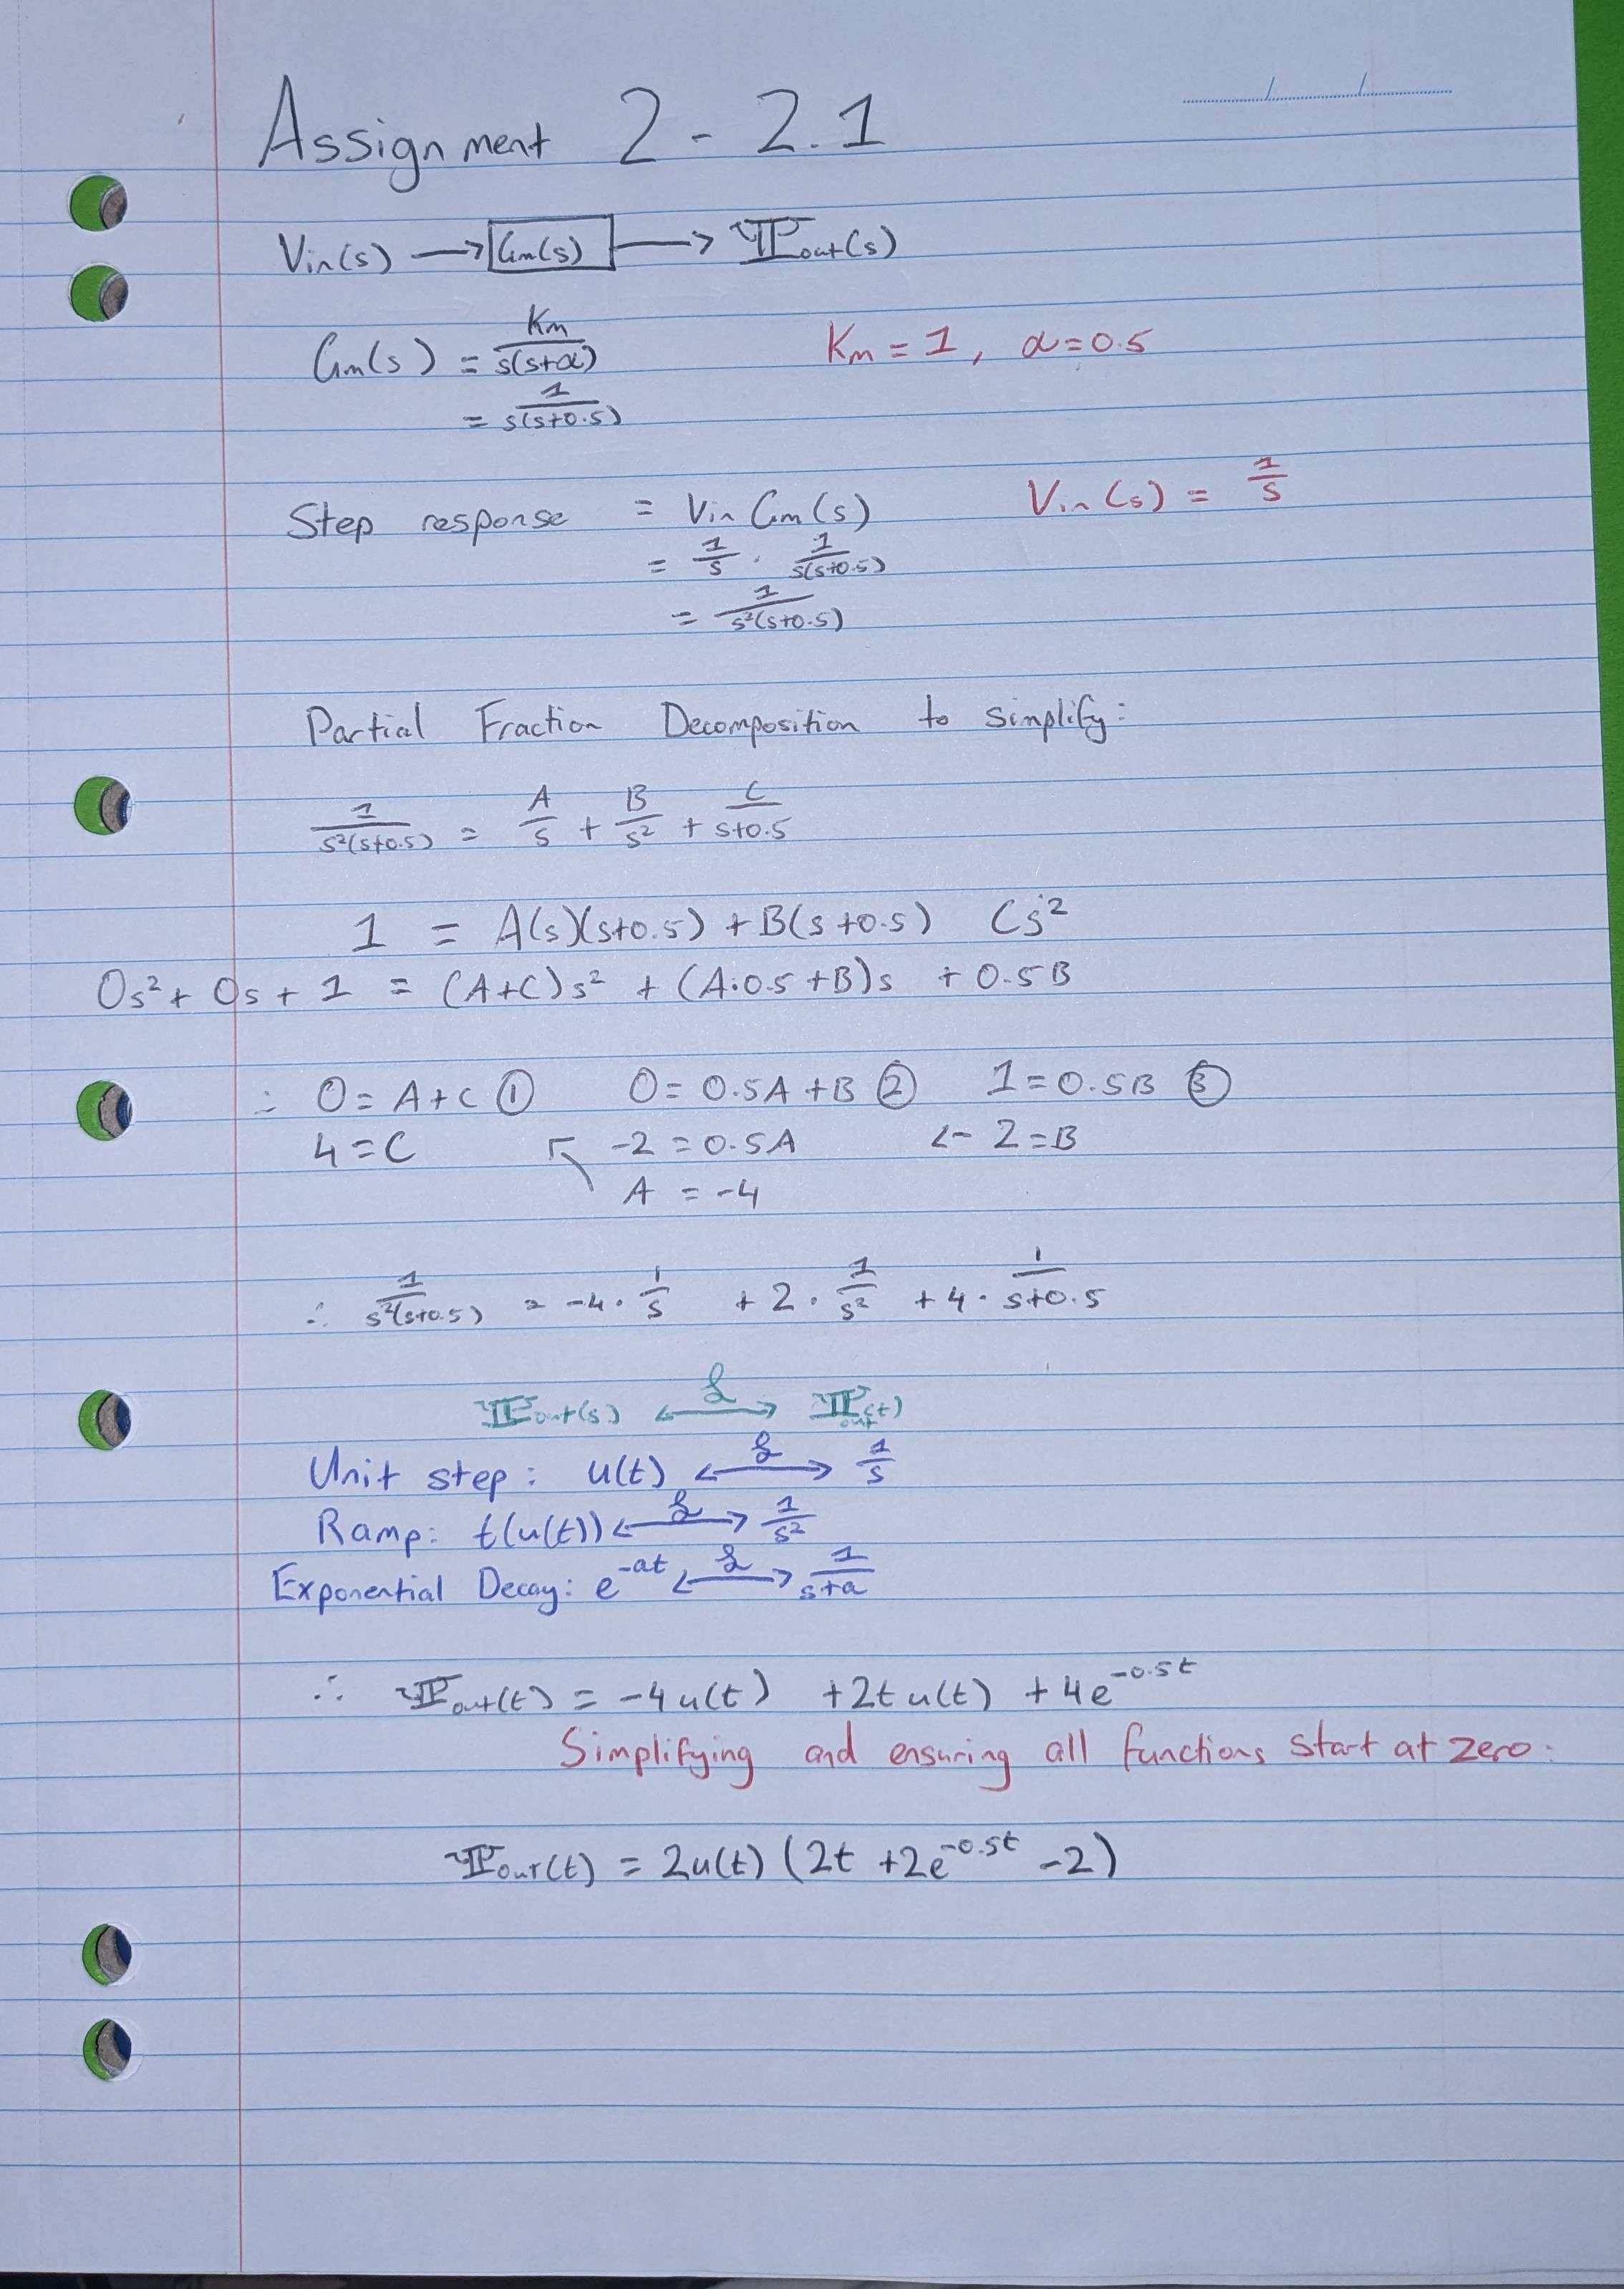 Assignment 2 - 2.1
Vin(s) → Gm(s) → Ψout(s)
Gm(s) = Km / s(s+α)    Km = 1, α = 0.5
= 1 / s(s+0.5)
Step response = Vin Gm(s)    Vin(s) = 1/s
= 1/s · 1/s(s+0.5)
= 1 / s²(s+0.5)
Partial Fraction Decomposition to simplify:
1 / s²(s+0.5) = A/s + B/s² + C/s+0.5
1 = A(s)(s+0.5) + B(s+0.5) Cs²
0s² + 0s + 1 = (A+C)s² + (A·0.5+B)s + 0.5B
∴ 0 = A+C ①    0 = 0.5A+B ②    1 = 0.5B ③
4 = C    ↖ -2 = 0.5A    ← 2 = B
A = -4
∴ 1 / s²(s+0.5) = -4 · 1/s + 2 · 1/s² + 4 · 1/s+0.5
Ψout(s) ⟷ℒ Ψout(t)
Unit step: u(t) ⟷ℒ 1/s
Ramp: t(u(t)) ⟷ℒ 1/s²
Exponential Decay: e^-at ⟷ℒ 1/s+a
∴ Ψout(t) = -4u(t) + 2t u(t) + 4e^-0.5t
Simplifying and ensuring all functions start at zero:
Ψout(t) = 2u(t) (2t + 2e^-0.5t - 2)